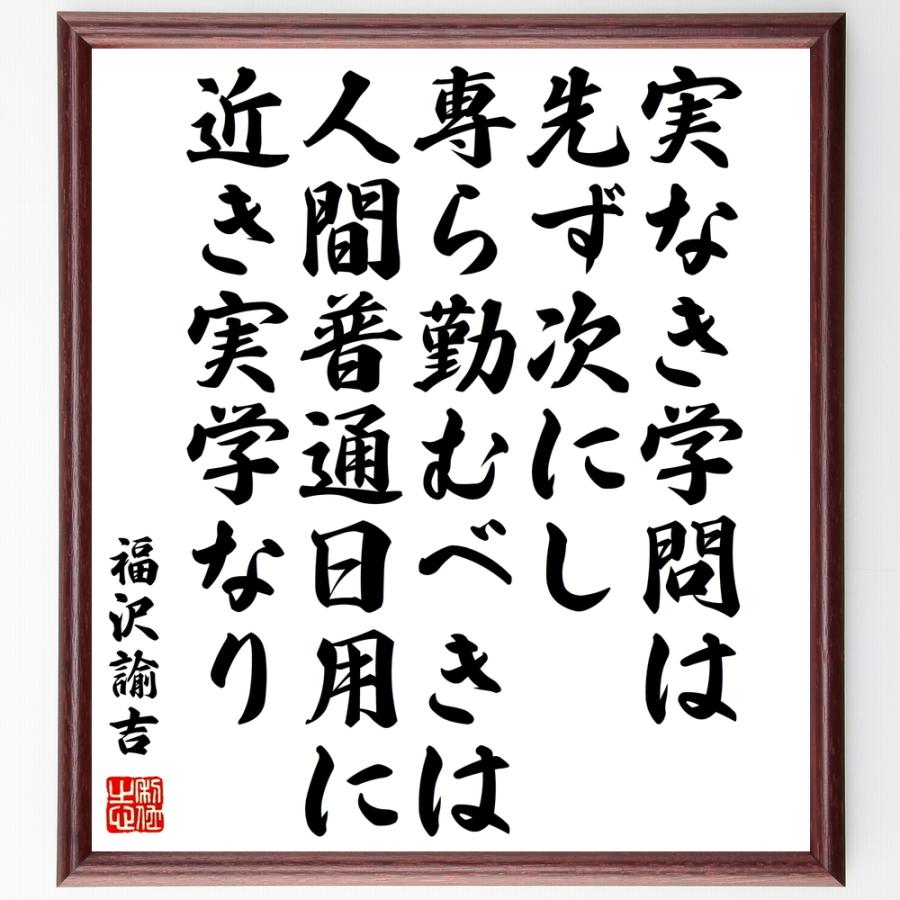 実なき学問は
先ず次にし
専ら勤むべきは
人間普通日用に
近き実学なり
福沢諭吉